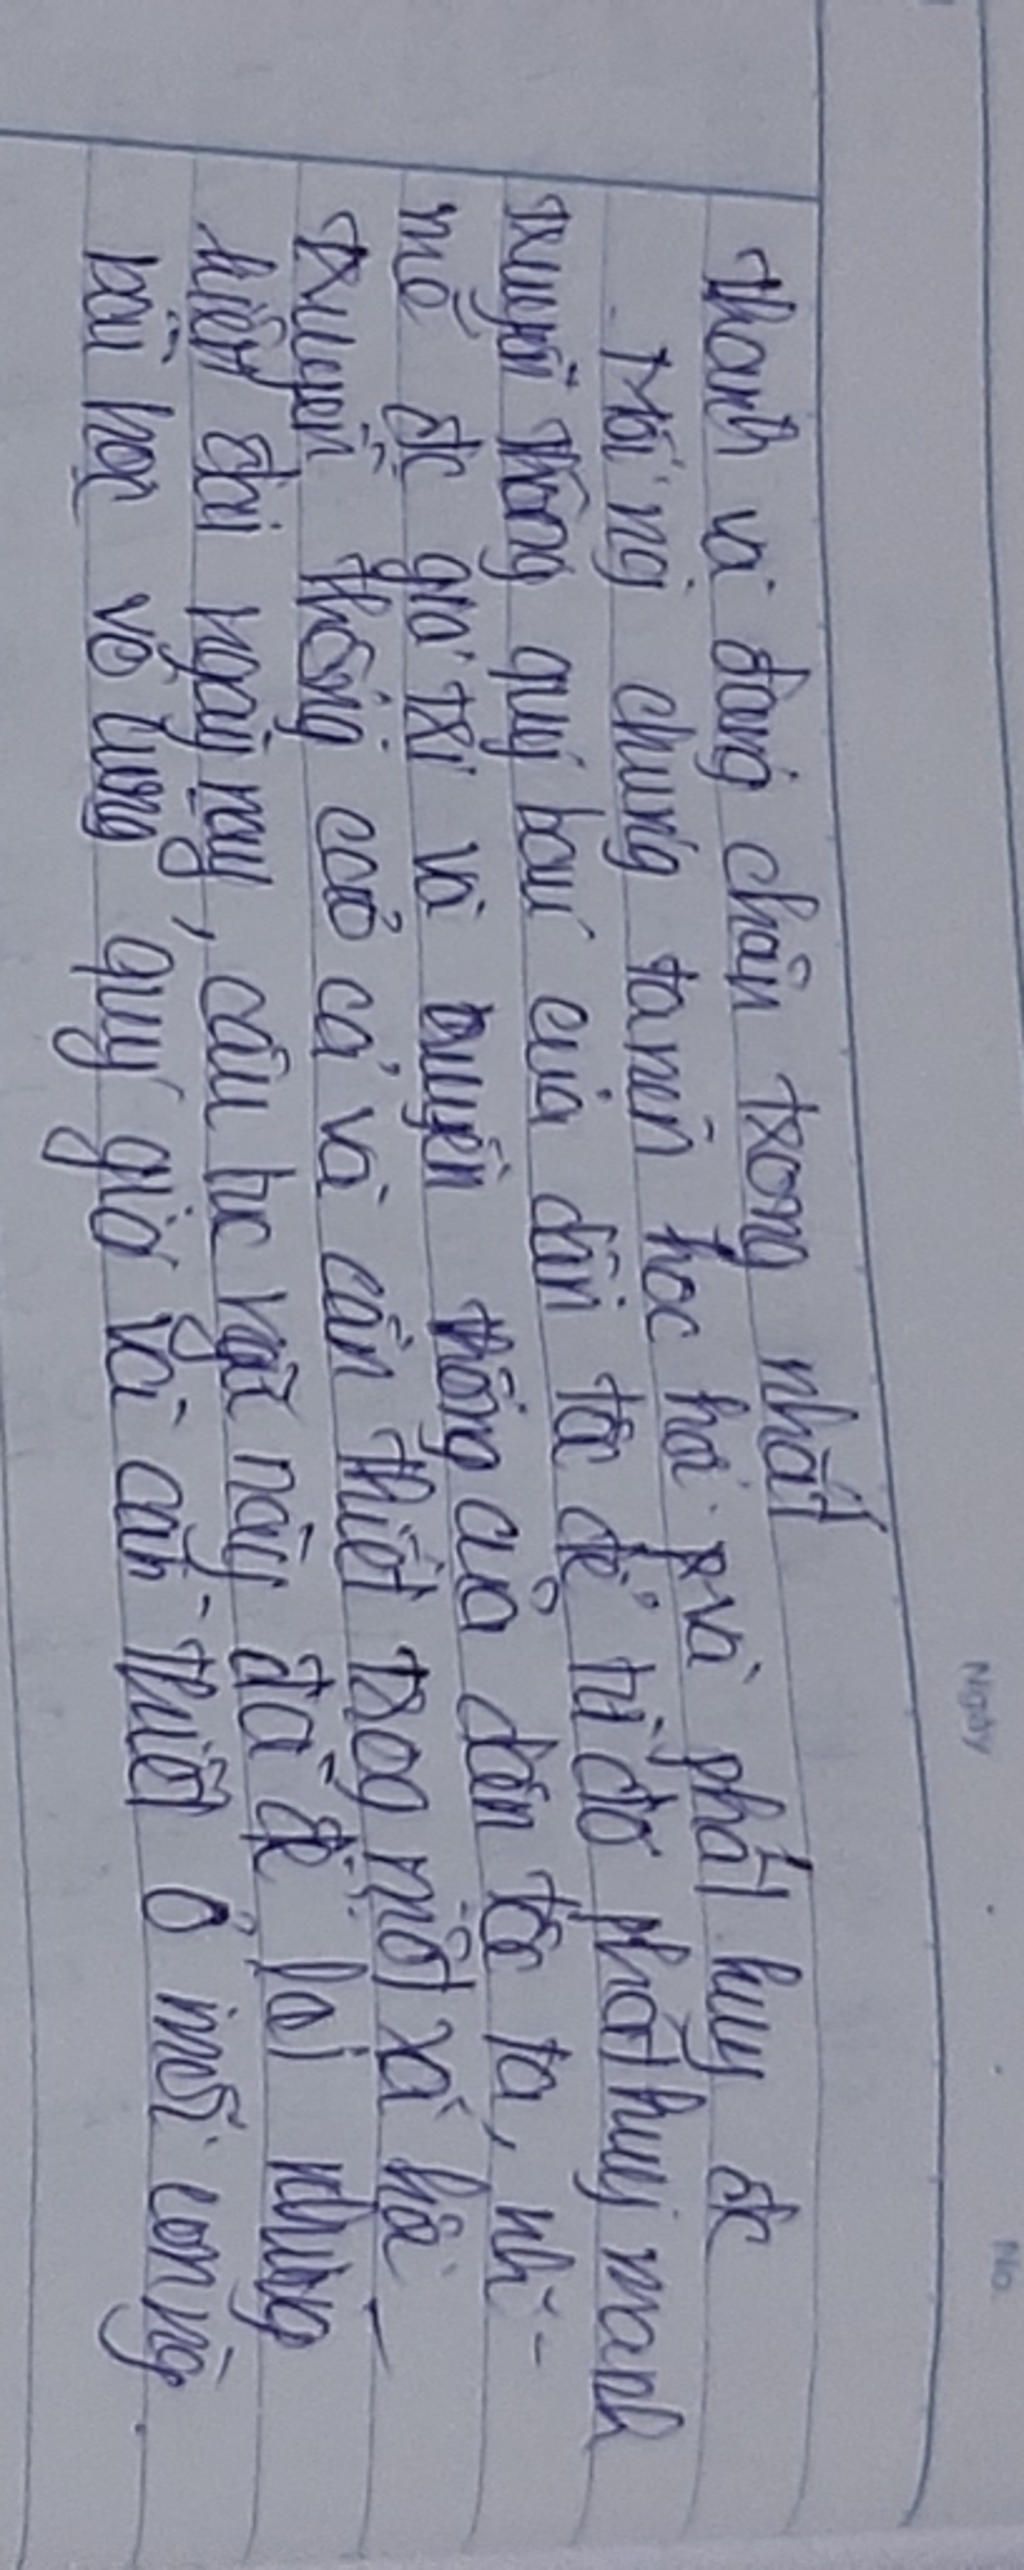 Ngày
No.
thành và đáng chân trọng nhất
Mỗi ng chúng ta nên học hỏi và phát huy đc
truyền thống quý báu của dân tộc để từ đó phát huy mạnh
mẽ đc giá trị và truyền thống của dân tộc ta, nh~
truyền thống cao cả và cần thiết trog một xã hội
hiện đại ngày nay, câu tục ngữ này đã để lại những
bài học vô cùng quý giá và cần thiết ở mỗi con ng.